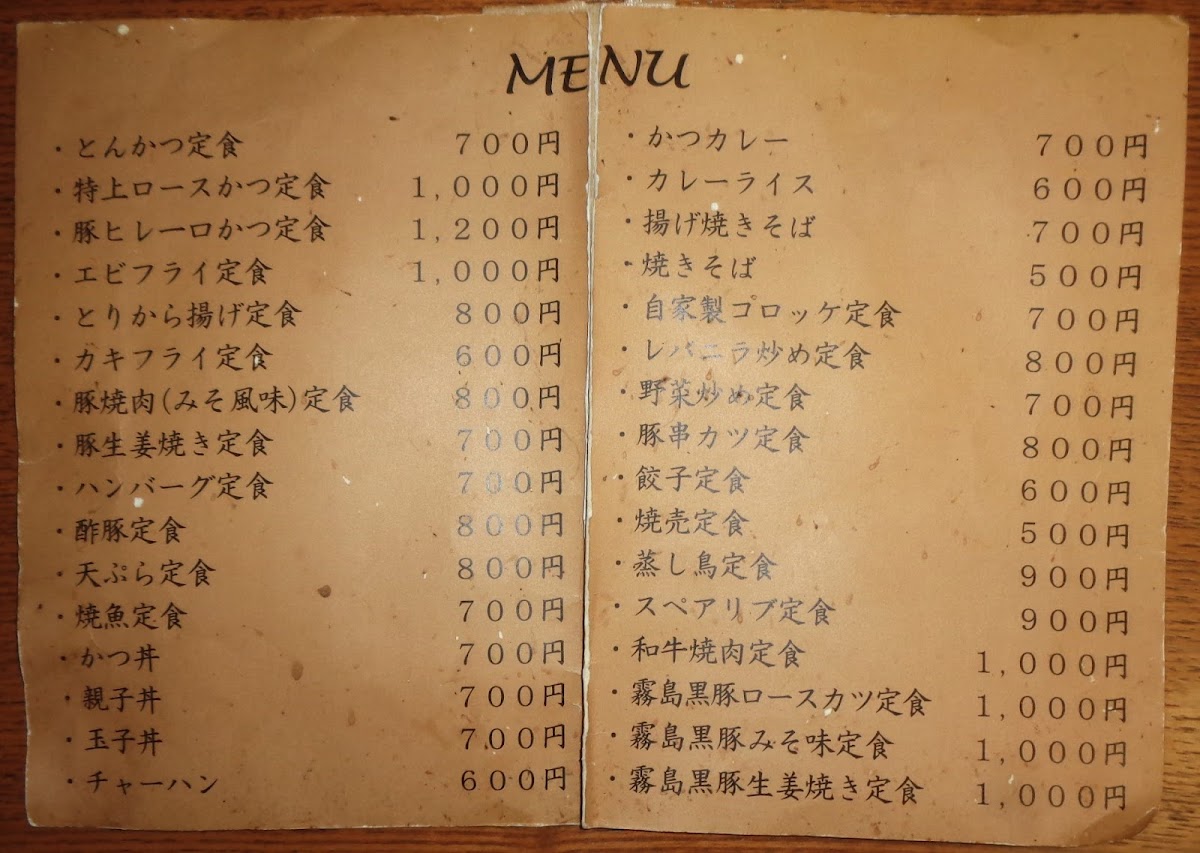 MENU
・とんかつ定食 700円
・特上ロースかつ定食 1,000円
・豚ヒレー口かつ定食 1,200円
・エビフライ定食 1,000円
・とりから揚げ定食 800円
・カキフライ定食 600円
・豚焼肉(みそ風味)定食 800円
・豚生姜焼き定食 700円
・ハンバーグ定食 700円
・酢豚定食 800円
・天ぷら定食 800円
・焼魚定食 700円
・かつ丼 700円
・親子丼 700円
・玉子丼 700円
・チャーハン 600円
・かつカレー 700円
・カレーライス 600円
・揚げ焼きそば 700円
・焼きそば 500円
・自家製コロッケ定食 700円
・レバニラ炒め定食 800円
・野菜炒め定食 700円
・豚串カツ定食 800円
・餃子定食 600円
・焼売定食 500円
・蒸し鳥定食 900円
・スペアリブ定食 900円
・和牛焼肉定食 1,000円
・霧島黒豚ロースカツ定食 1,000円
・霧島黒豚みそ味定食 1,000円
・霧島黒豚生姜焼き定食 1,000円